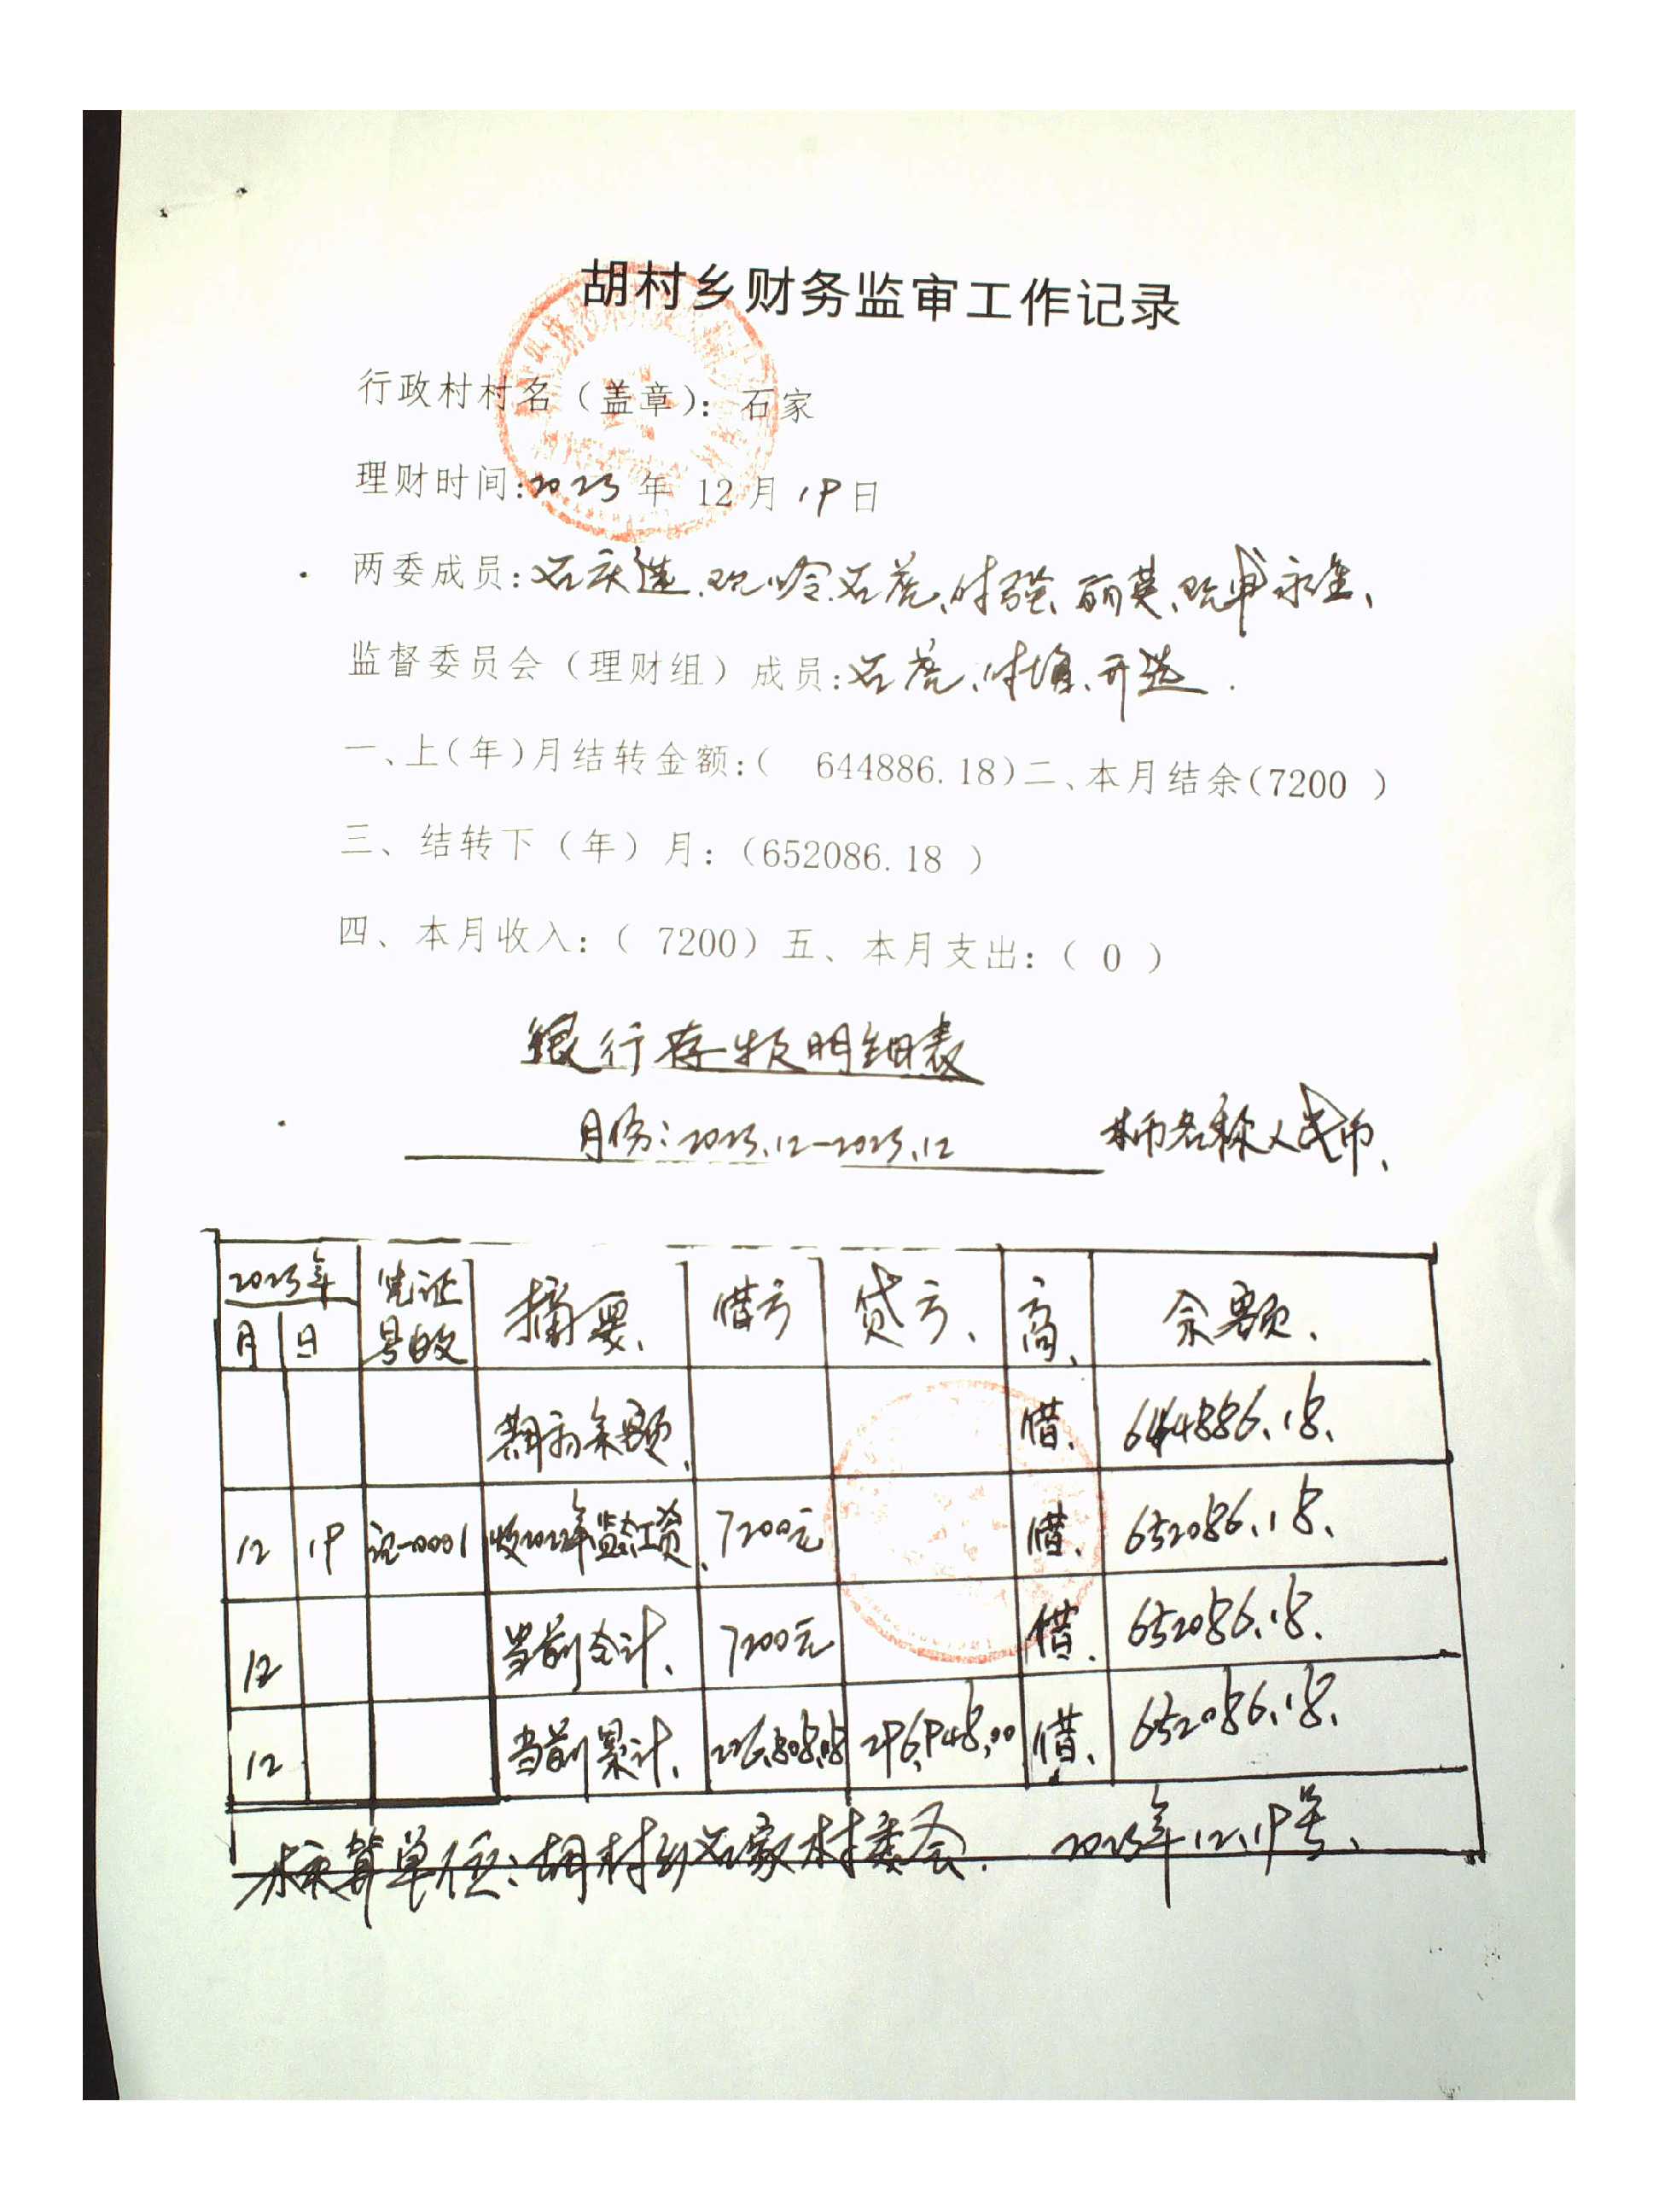 胡村乡财务监审工作记录
行政村村名（盖章）：石家
理财时间:2023年 12月19日
两委成员:石庆选、石虎、时强、丽英、永生、
监督委员会（理财组）成员:石虎、时、开选.
一、上(年)月结转金额:( 644886.18)二、本月结余(7200 )
三、结转下（年）月:（652086.18 ）
四、本月收入:（ 7200）五、本月支出:（ 0 ）
银行存款明细表
月份:2023.12-2023.12 本币名称人民币、
2023年 凭证 摘要、 借方 贷方、 方向、 余额、
月 日 号数
期初余额、 借、 644886.18、
12 19 记-0001 收2022年工资、 7200元 借、 652086.18、
12 当前合计、 7200元 借、 652086.18、
12 当前累计、 296,948.00 借、 652086.18、
核算单位:胡村乡石家村委会. 2023年12.19号、